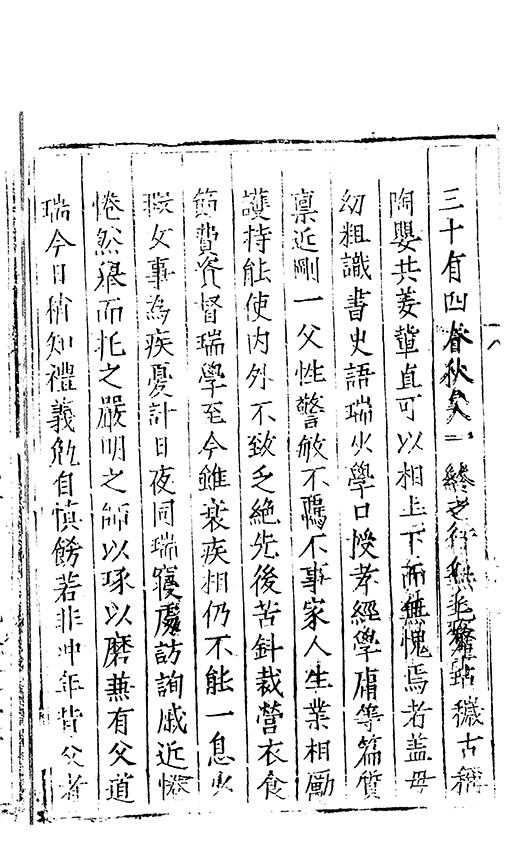 三十有四春秋矣一終之行無毫釐玷穢古稱
陶嬰共姜輩直可以相上下而無愧焉者盖母
幼粗識書史語瑞火學口授孝經學庸等篇質
禀近剛一父性警敏不羈不事家人生業相勵
護持能使内外不致乏絶先後苦針裁營衣食
節費資督瑞學至今雖衰疾相仍不能一息少
輟女事為疾憂計日夜同瑞寢處訪詢戚近惓
惓然猥而托之嚴明之師以琢以磨兼有父道
瑞今日稍知禮義勉自慎飭若非冲年背父者